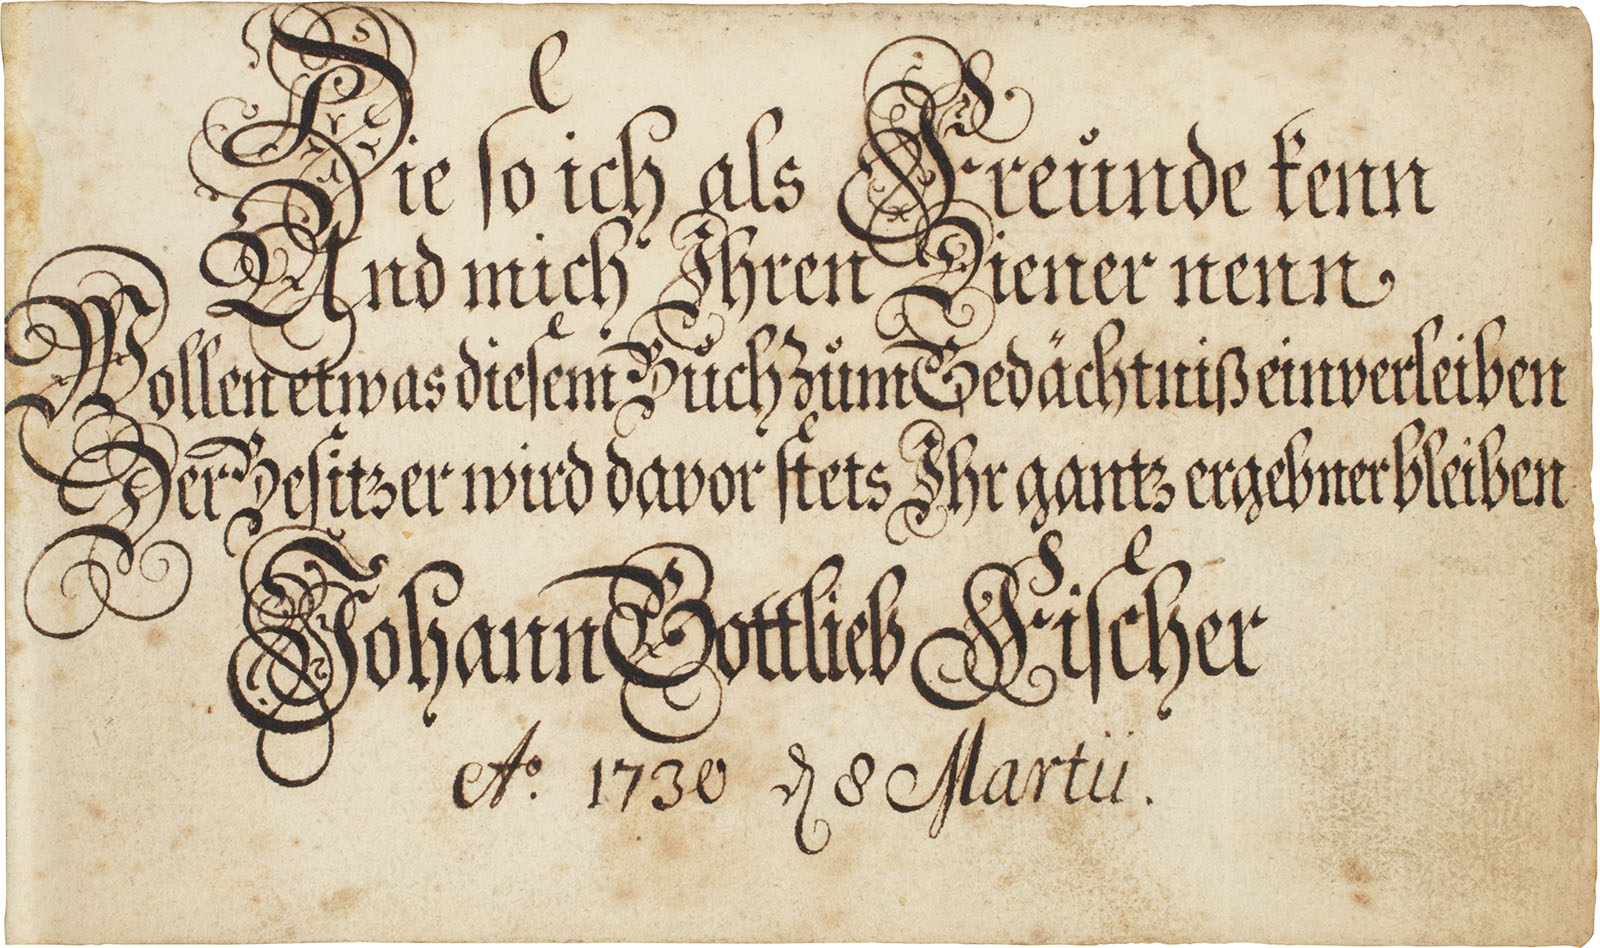 Die so ich als Freunde kenn
Und mich Ihren Diener nenn
Wollen etwas diesem Buch zum Gedächtniß einverleiben
Der Besitzer wird davor stets Ihr gantz ergebner bleiben
Johann Gottlieb Fischer
Ao. 1730 d 8 Martii.